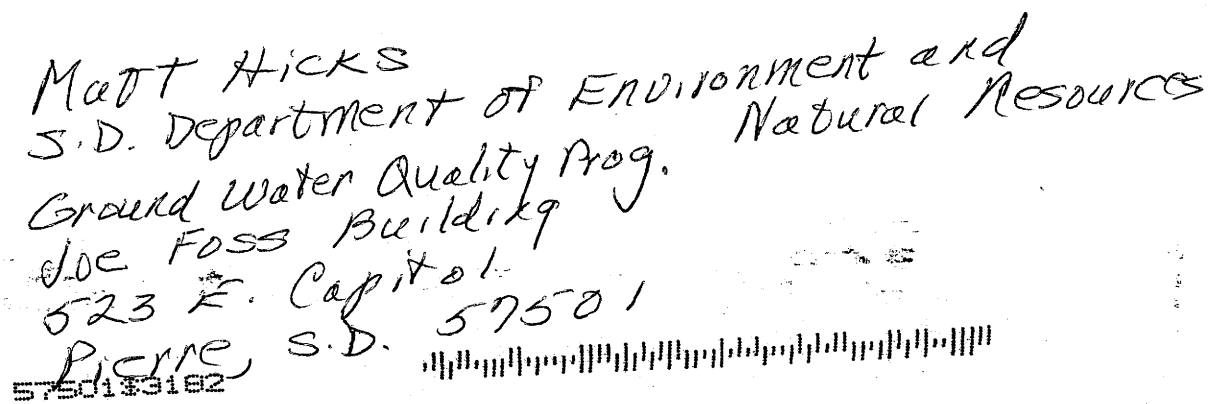 Matt Hicks
S.D. Department of Environment and
Natural Resources
Ground Water Quality Prog.
Joe Foss Building
523 E. Capitol
Pierre, S.D. 57501